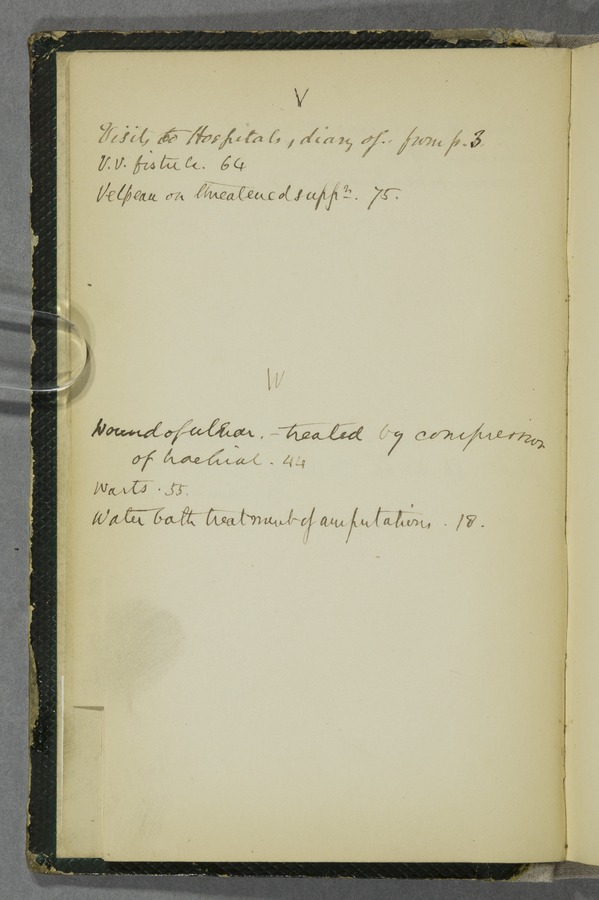 V
Visits to Hospitals, diary of.. from p. 3
V.V. fistula. 64
Velpeau on threatened suppn. 75.
W
Wound of ulnar. - treated by compression
of brachial. 44
Warts. 55.
Water bath treatment of amputations. 18.